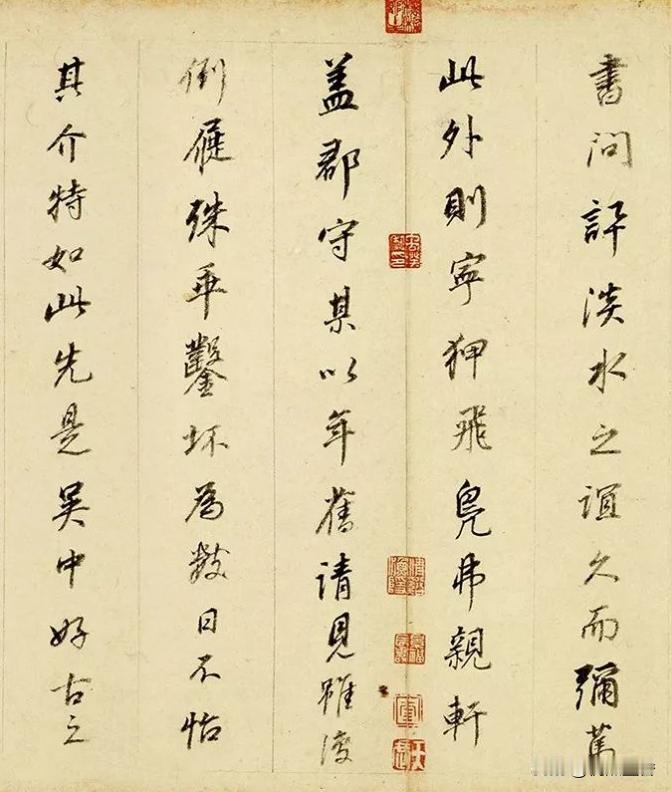 書問許淡水之誼久而彌篤
此外則寧狎飛鳧弗親軒
蓋郡守某以年舊請見雖復
倒屣殊乖鑿坏為數日不怡
其介特如此先是吳中好古之